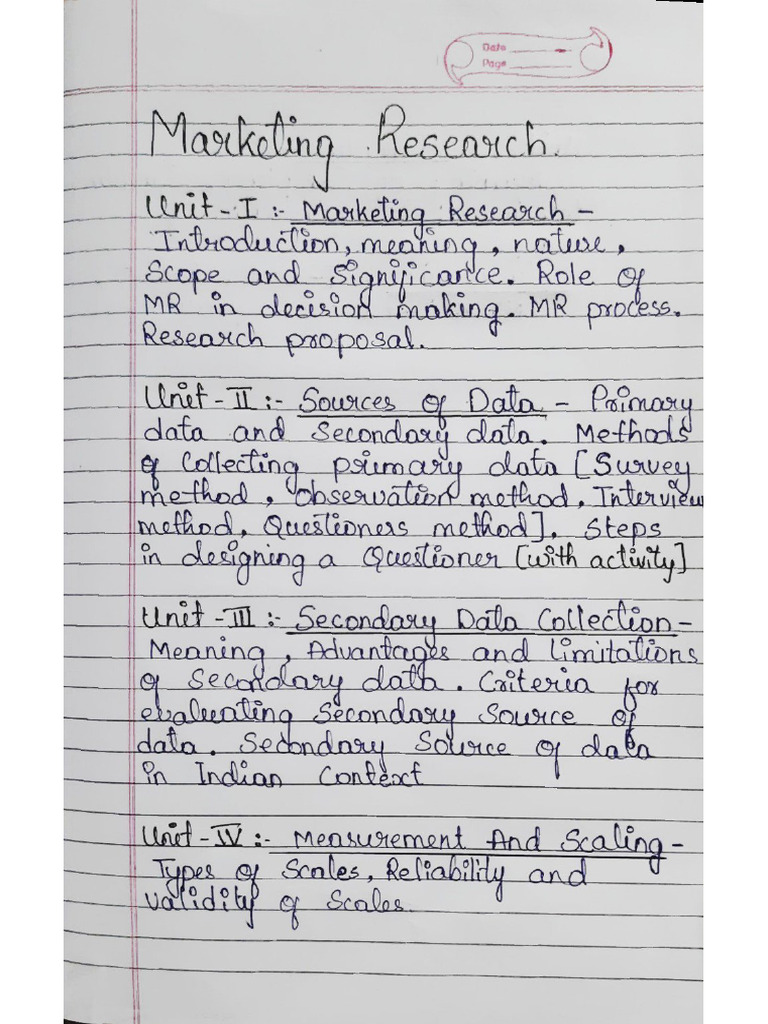 Date
Page
Marketing Research.
Unit-I :- Marketing Research -
Introduction, meaning, nature,
Scope and Significance. Role of
MR in decision making. MR process.
Research proposal.
Unit-II :- Sources of Data - Primary
data and Secondary data. Methods
of Collecting primary data [Survey
method, Observation method, Interview
method, Questioners method]. Steps
in designing a Questioner [with activity]
Unit-III :- Secondary Data Collection-
Meaning, Advantages and Limitations
of Secondary data. Criteria for
evaluating Secondary Source of
data. Secondary Source of data
in Indian Context
Unit-IV :- Measurement And Scaling-
Types of Scales, Reliability and
validity of Scales